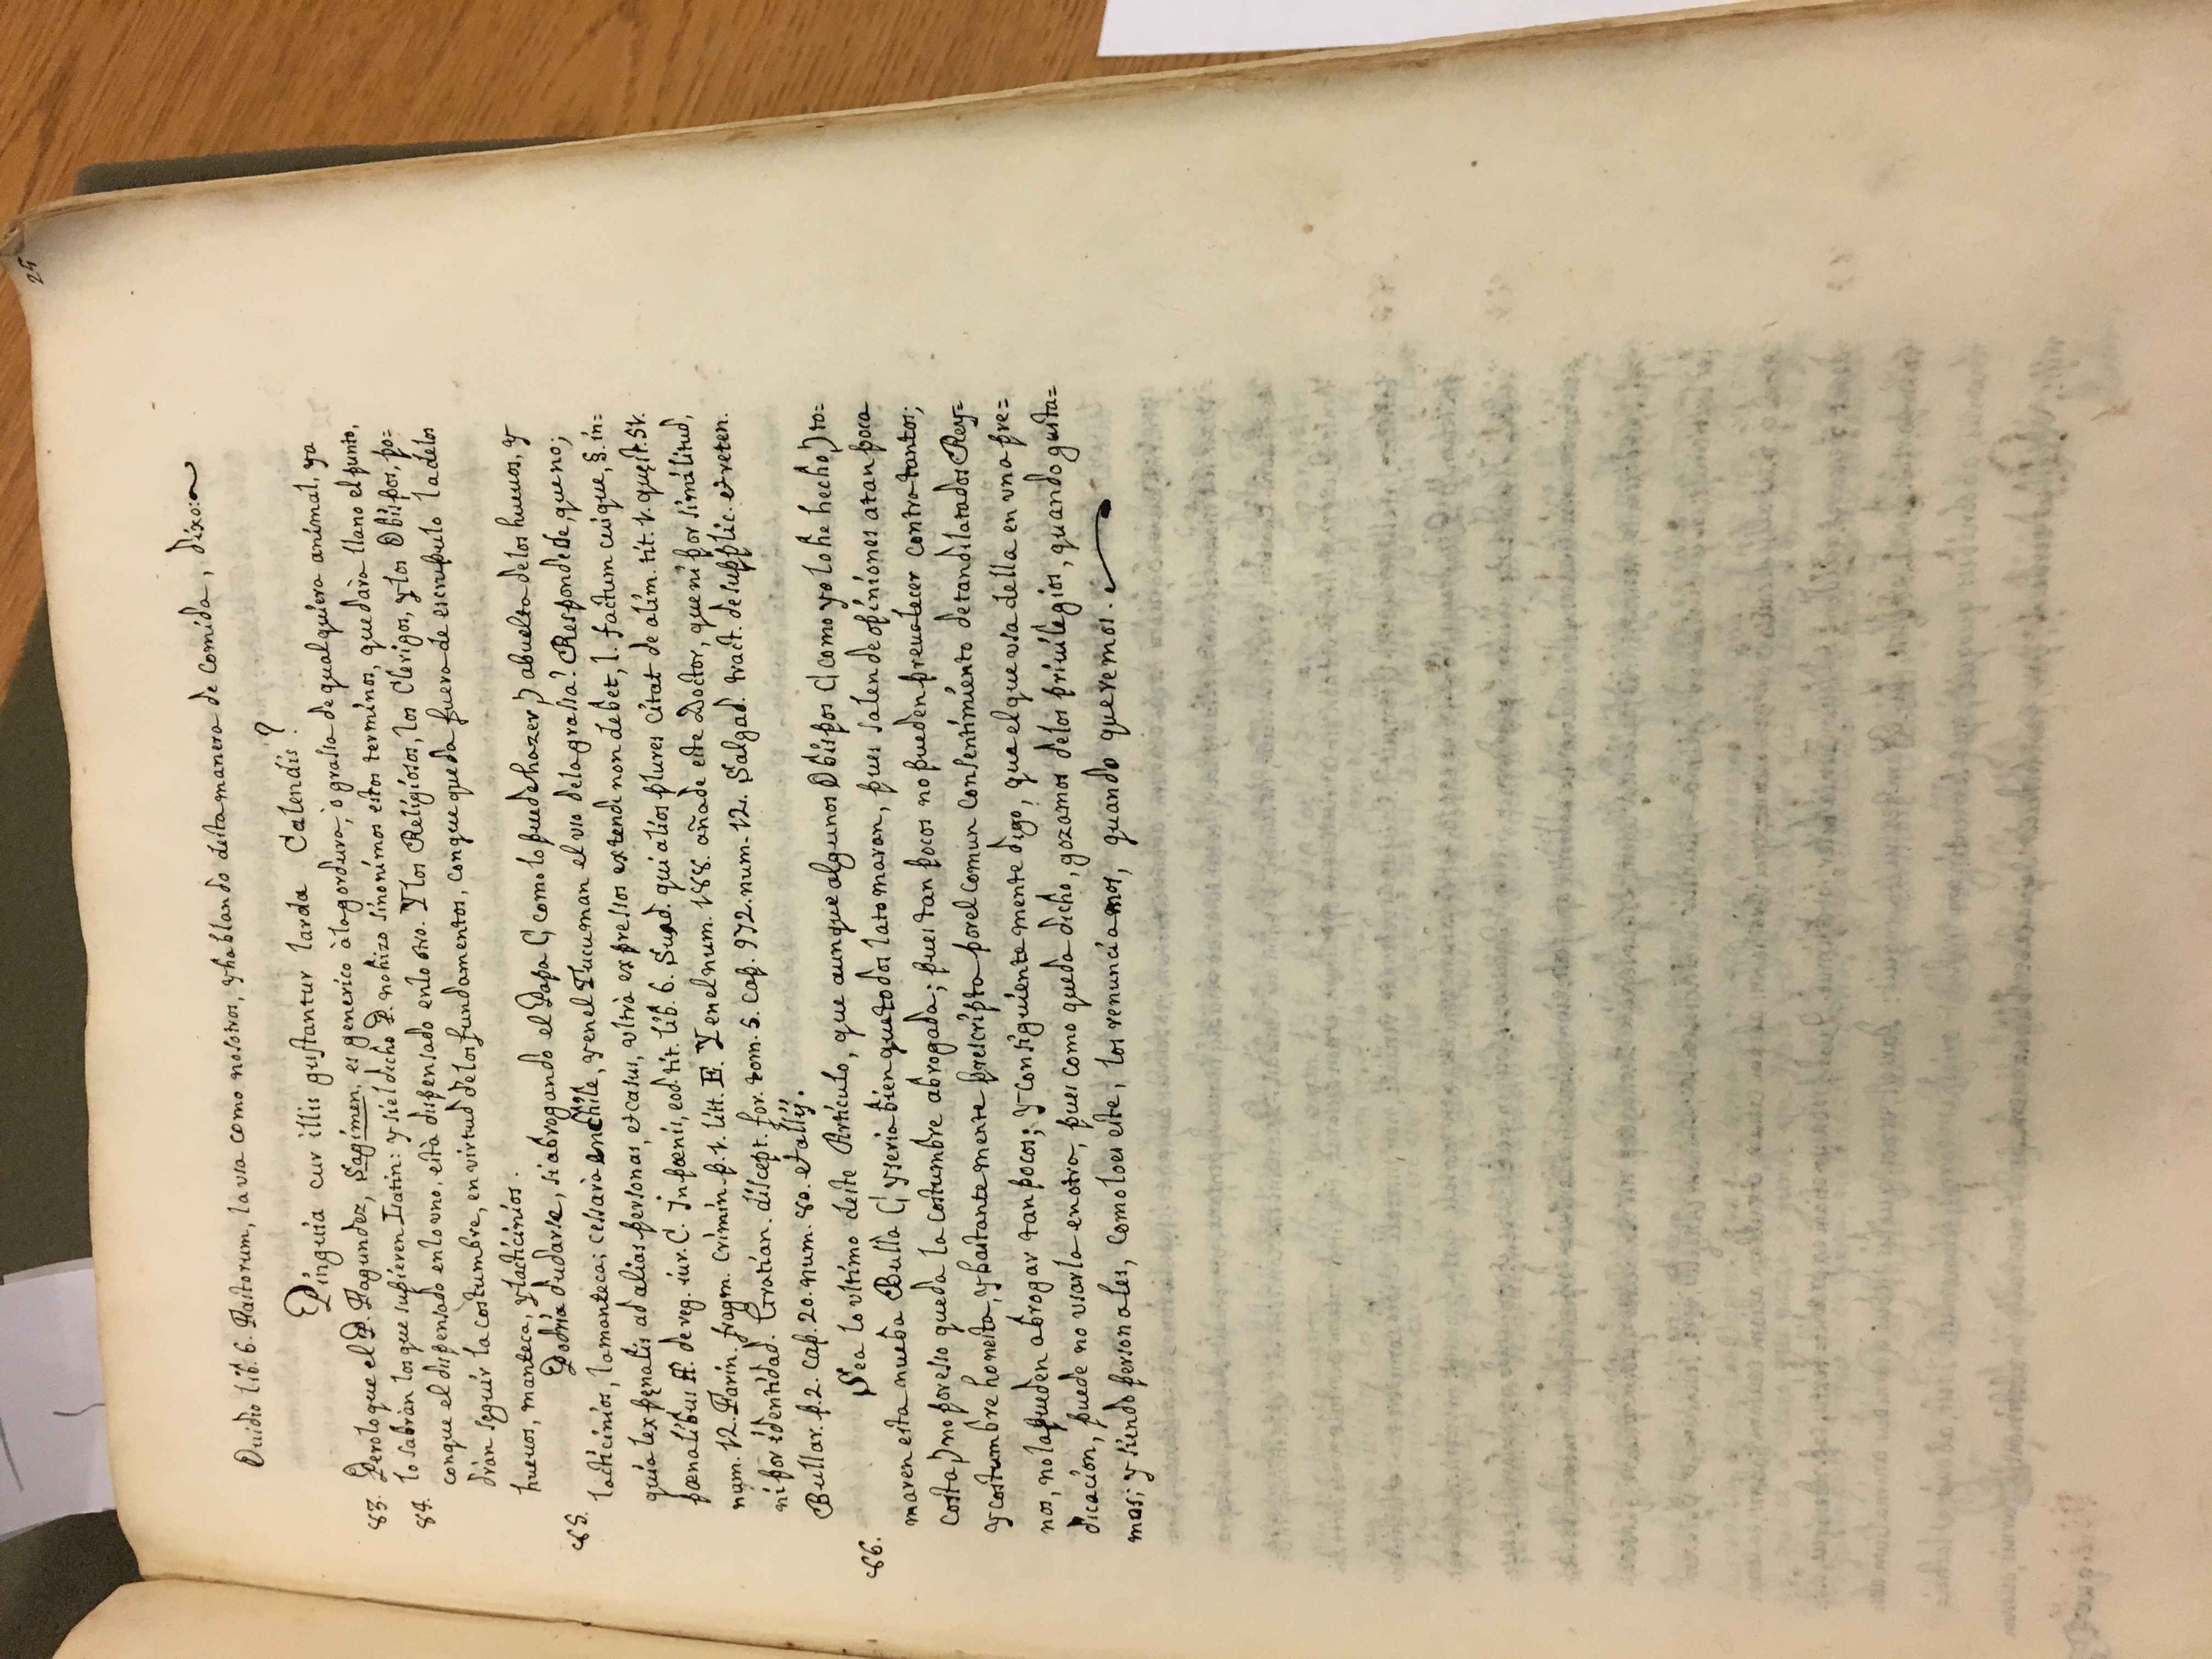 25
Ouidio lib. 6. Fastorum, la vsa como nosotros, y hablando desta manera de comida, dixo:
Pinguia cur illis gustantur larda Calendis?
83. Pero lo que el P. Fagundez, Sagimen, es generico à la gordura, ò grassa de qualquiera animal, ya
84. lo sabràn los que supieren Latin: y si el dicho P. no hizo sinonimos estos terminos, quedarà llano el punto,
conque el dispensado en lo vno, està dispensado en lo otro. Y los Religiosos, los Clerigos, y los Obispos, po=
dràn seguir la costumbre, en virtud de los fundamentos, conque queda fuera de escrupulo la de los
hueuos, manteca, y lacticinios.
85. Podria dudarse, si abrogando el Papa (como lo puede hazer) abuelta de los hueuos, y
lacticinios, la manteca; cessarà en Chile, y en el Tucuman el vso de la grassa? Respondese, que no;
quia lex pęnalis ad alias personas, et casus, vltrà expressos extendi non debet, l. factum cuique, §. in=
pœnalibus ff. de reg. iur. C. In pœnis, eod. tit. lib. 6. Surd. qui alios plures citat de alim. tit. 1. quęst. 51.
num. 12. Farin. fragm. crimin. p. 1. litt. E. Y en el num. 188. añade este Doctor, que ni por similitud,
ni por identidad. Gratian. discept. for. tom. 5. cap. 972. num. 12. Salgad. tract. de supplic. et reten.
Bullar. p. 2. cap. 20. num. 80. et allij.
86. Sea lo vltimo deste Articulo, que aunque algunos Obispos (como yo lo he hecho) to=
maren esta nueba Bulla (y seria bien que todos la tomaran, pues salen de opiniones a tan poca
costa) no por esso queda la costumbre abrogada; pues tan pocos no pueden preualecer contra tantos;
y costumbre honesta, y bastantemente prescripta por el comun consentimiento de tan dilatados Rey=
nos, no la pueden abrogar tan pocos; y consiguientemente digo, que el que vsa della en vna pre=
dicacion, puede no vsarla en otra, pues como queda dicho, gozamos de los priuilegios, quando gusta=
mos; y siendo personales, como lo es este, los renunciamos, quando queremos.